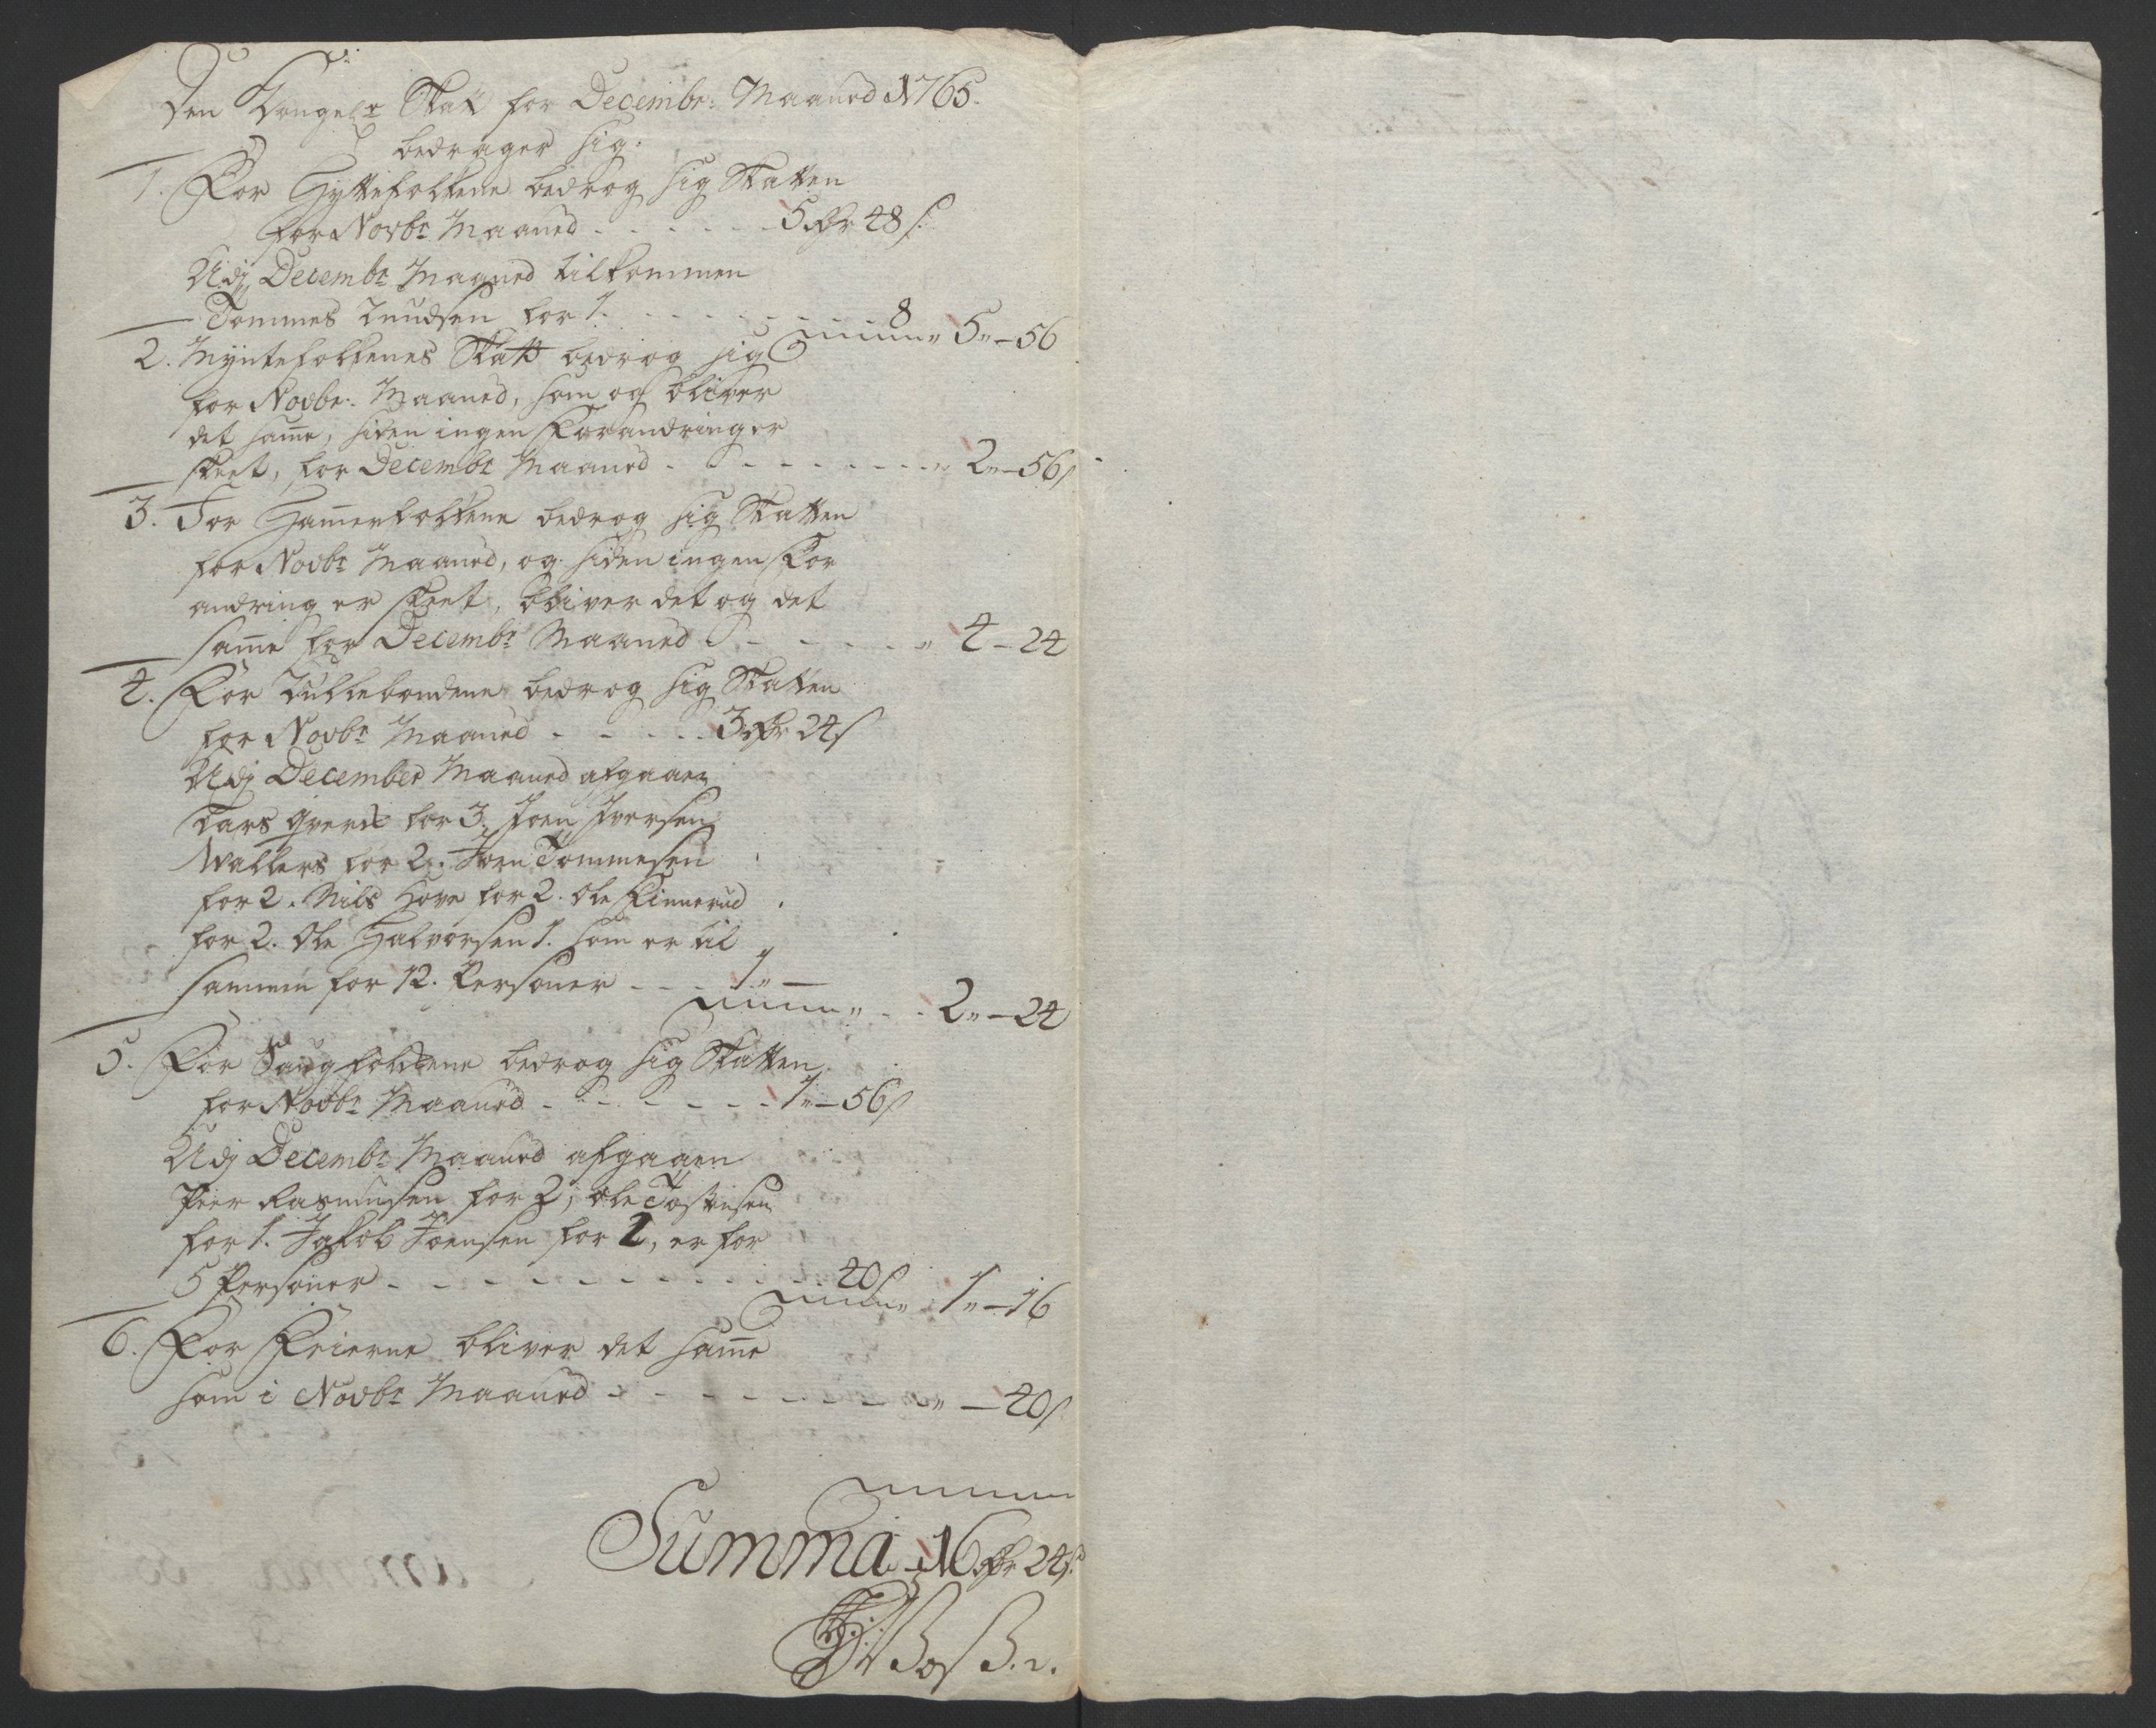 Den Kongel: Skat for Decembr: Maaned 1765.
bedrager sig:
1. For Hyttefolkene bedrog sig Skatten
for Novbr. Maaned - - - - - - 5 Rdr 48 s.
Udj Decembr. Maaned tilkommen
Tommes Knudsen for 1. - - - - - - - 8
5 " - 56
2. Myntefolkenes Skatt bedrog sig
for Novbr. Maaned, som og bliver
det samme, siden ingen Forandring er
skeet, for Decembr Maaned - - - - - - - - " 2 " - 56 s
3. For Hammerfolkene bedrog sig Skatten
for Novbr. Maaned, og siden ingen For
andring er skeet, bliver det og det
samme for Decembr. Maaned - - - - - " 4 - 24
4. For Kullebondene bedrog sig Skatten
for Novbr Maaned - - - - - 3 Rdr 24 s
Udj December Maaned afgaaen
Lars for 3. Joen Iversen
Wallers for 2. Joen Tommesen
for 2. Nils Hove for 2. Ole Finnerud
for 2. Ole Halvorsen 1. som er til
sammen for 12. Personer - - - 1 " -
" - - 2 " - 24
5. For Saugfolkene bedrog sig Skatten
for Novbr Maaned - - - - - - - 1 " - 56 s
Udj Decembr. Maaned afgaaen
Peer Rasmusen for 2, Ole Tostensen
for 1. Jakob Joensen for 2, er for
5 Personer - - - - - - - - - - 40 s
" 1 " - 16
6. For Feierne bliver det samme
som i Novbr. Maaned - - - - - - - " - 40 s.
Summa 16 Rdr 24 s.